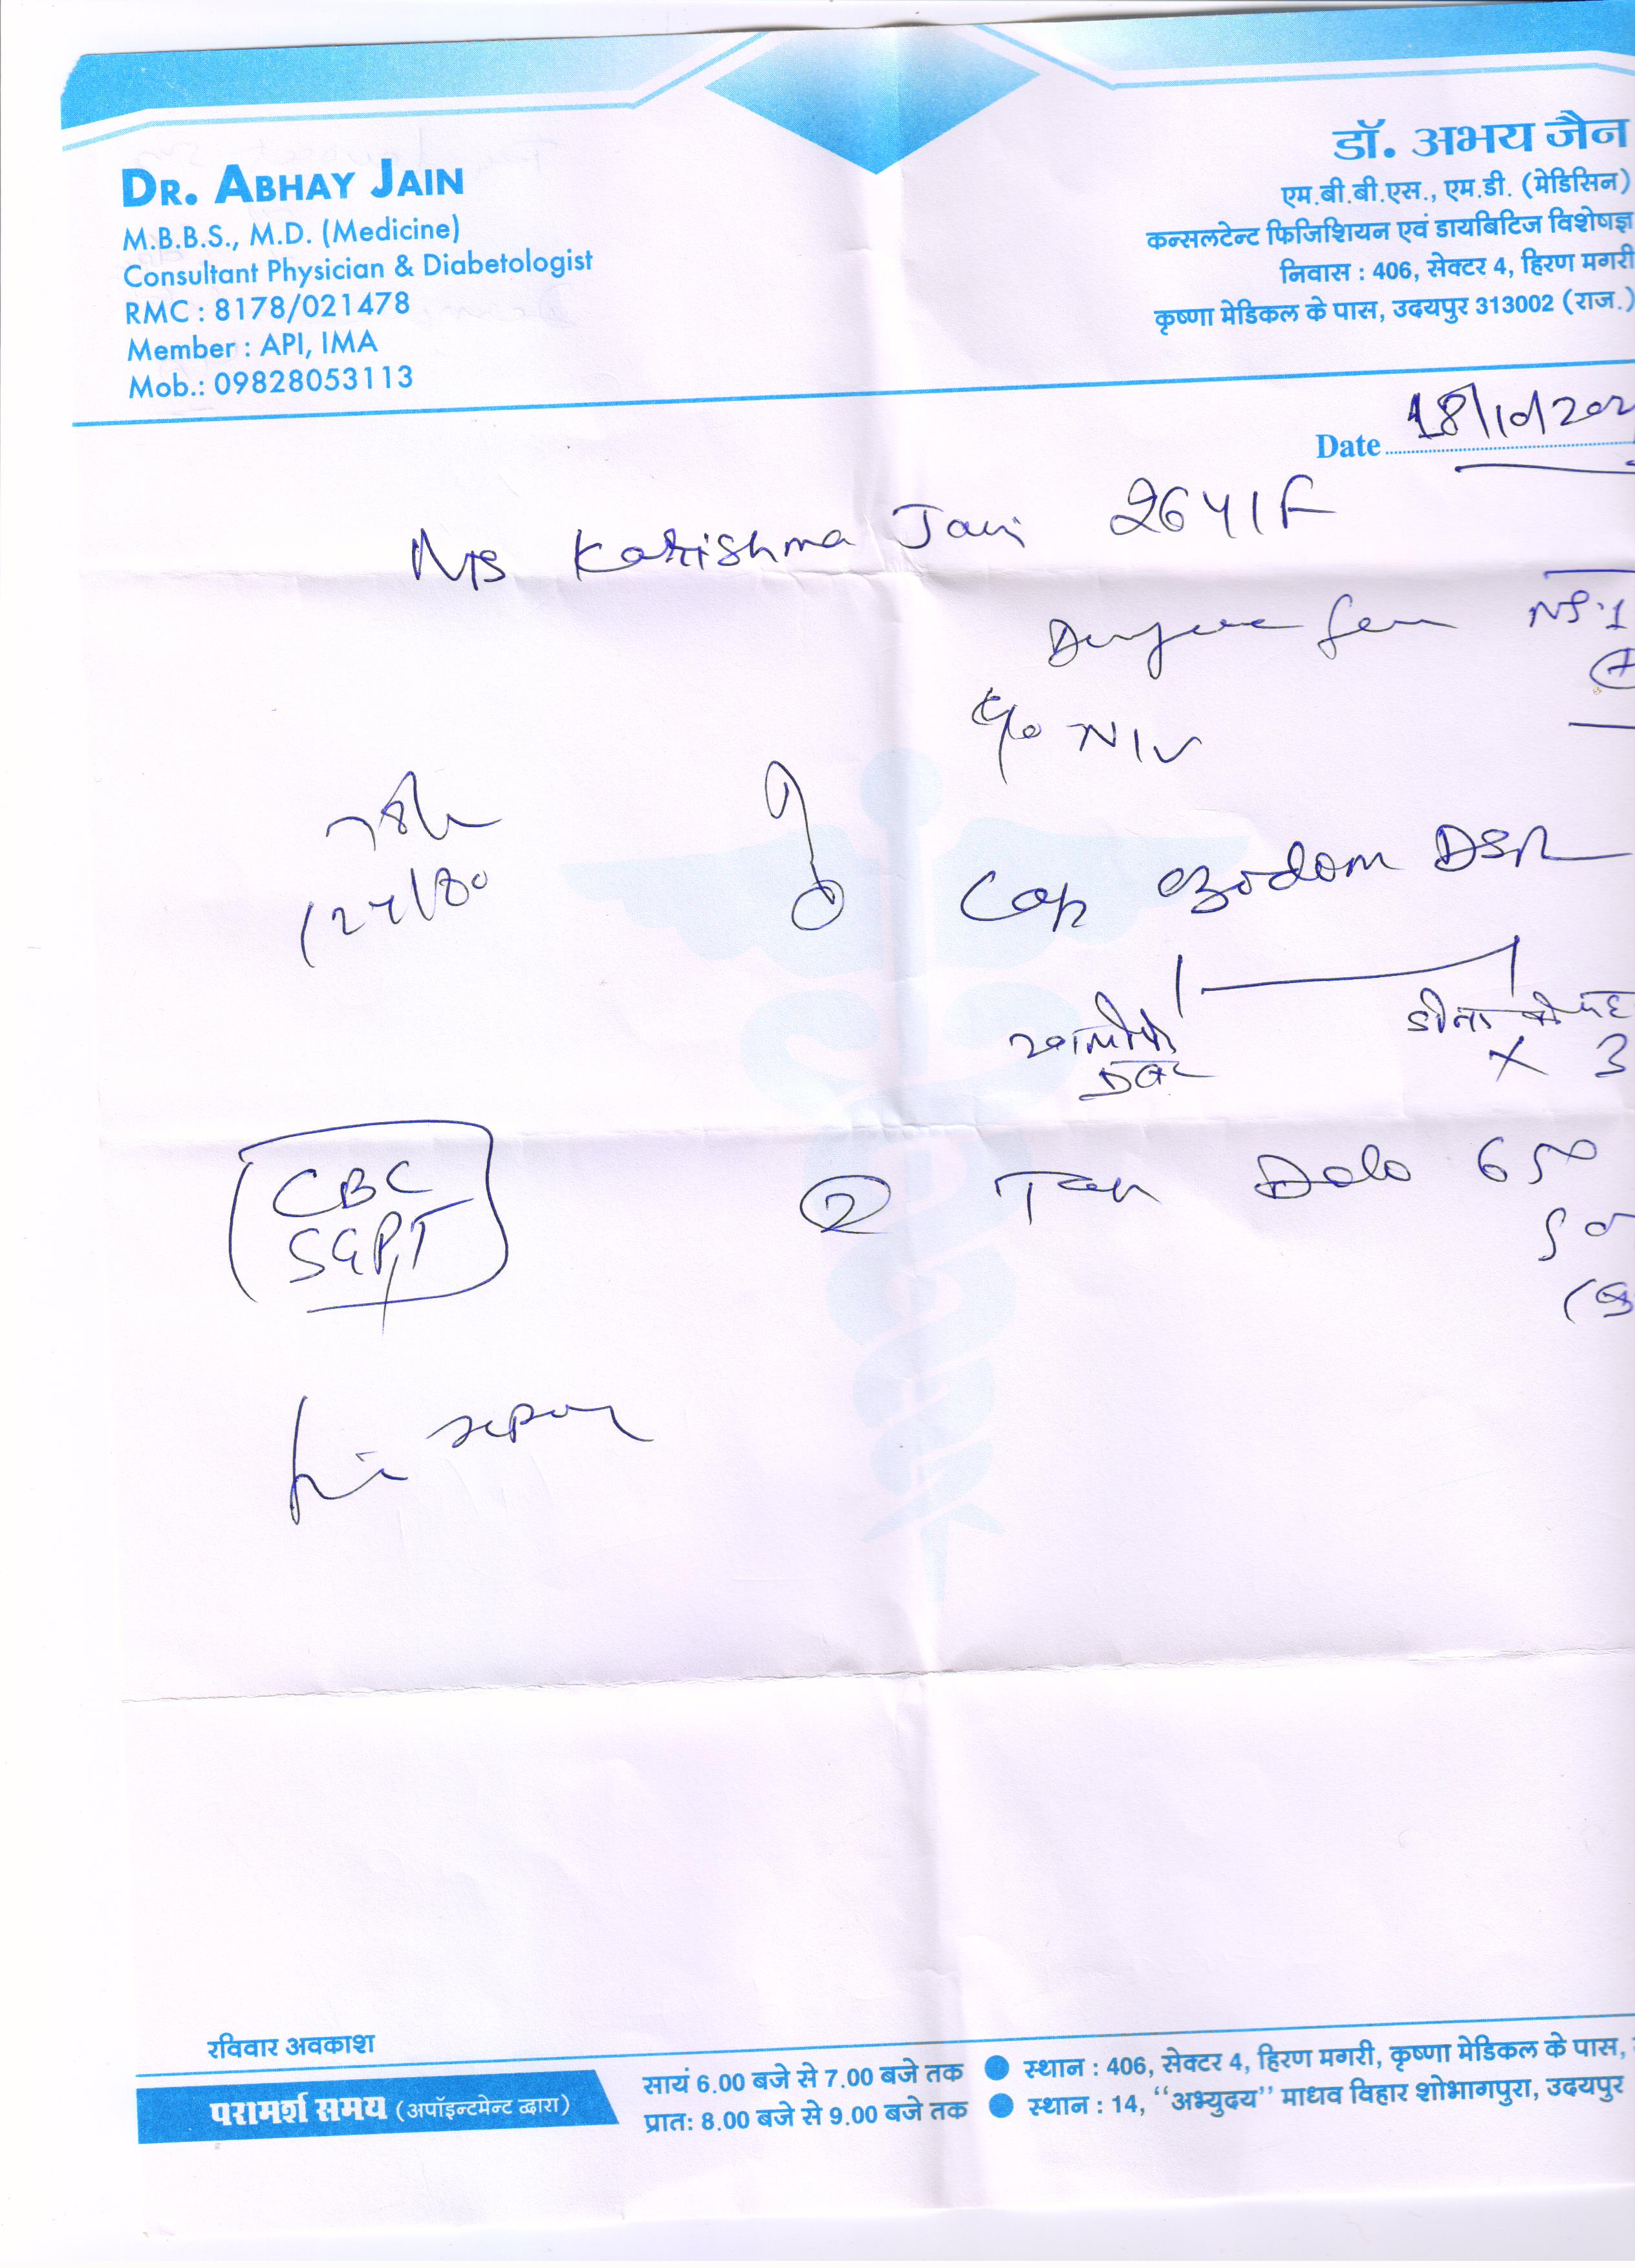 DR. ABHAY JAIN
M.B.B.S., M.D. (Medicine)
Consultant Physician & Diabetologist
RMC : 8178/021478
Member : API, IMA
Mob.: 09828053113
डॉ. अभय जैन
एम.बी.बी.एस., एम.डी. (मेडिसिन)
कन्सलटेन्ट फिजिशियन एवं डायबिटिज विशेषज्ञ
निवास : 406, सेक्टर 4, हिरण मगरी
कृष्णा मेडिकल के पास, उदयपुर 313002 (राज.)
Date 18/10/202
Ms Karishma Jain 26Y/F
Dengue fever NS1
c/o N/V
124/80
Cap DSR
खाली पेट
X 3
CBC
SGPT
② Tab Dolo 650
रविवार अवकाश
परामर्श समय (अपॉइन्टमेन्ट द्वारा)
सायं 6.00 बजे से 7.00 बजे तक ● स्थान : 406, सेक्टर 4, हिरण मगरी, कृष्णा मेडिकल के पास,
प्रात: 8.00 बजे से 9.00 बजे तक ● स्थान : 14, "अभ्युदय" माधव विहार शोभागपुरा, उदयपुर